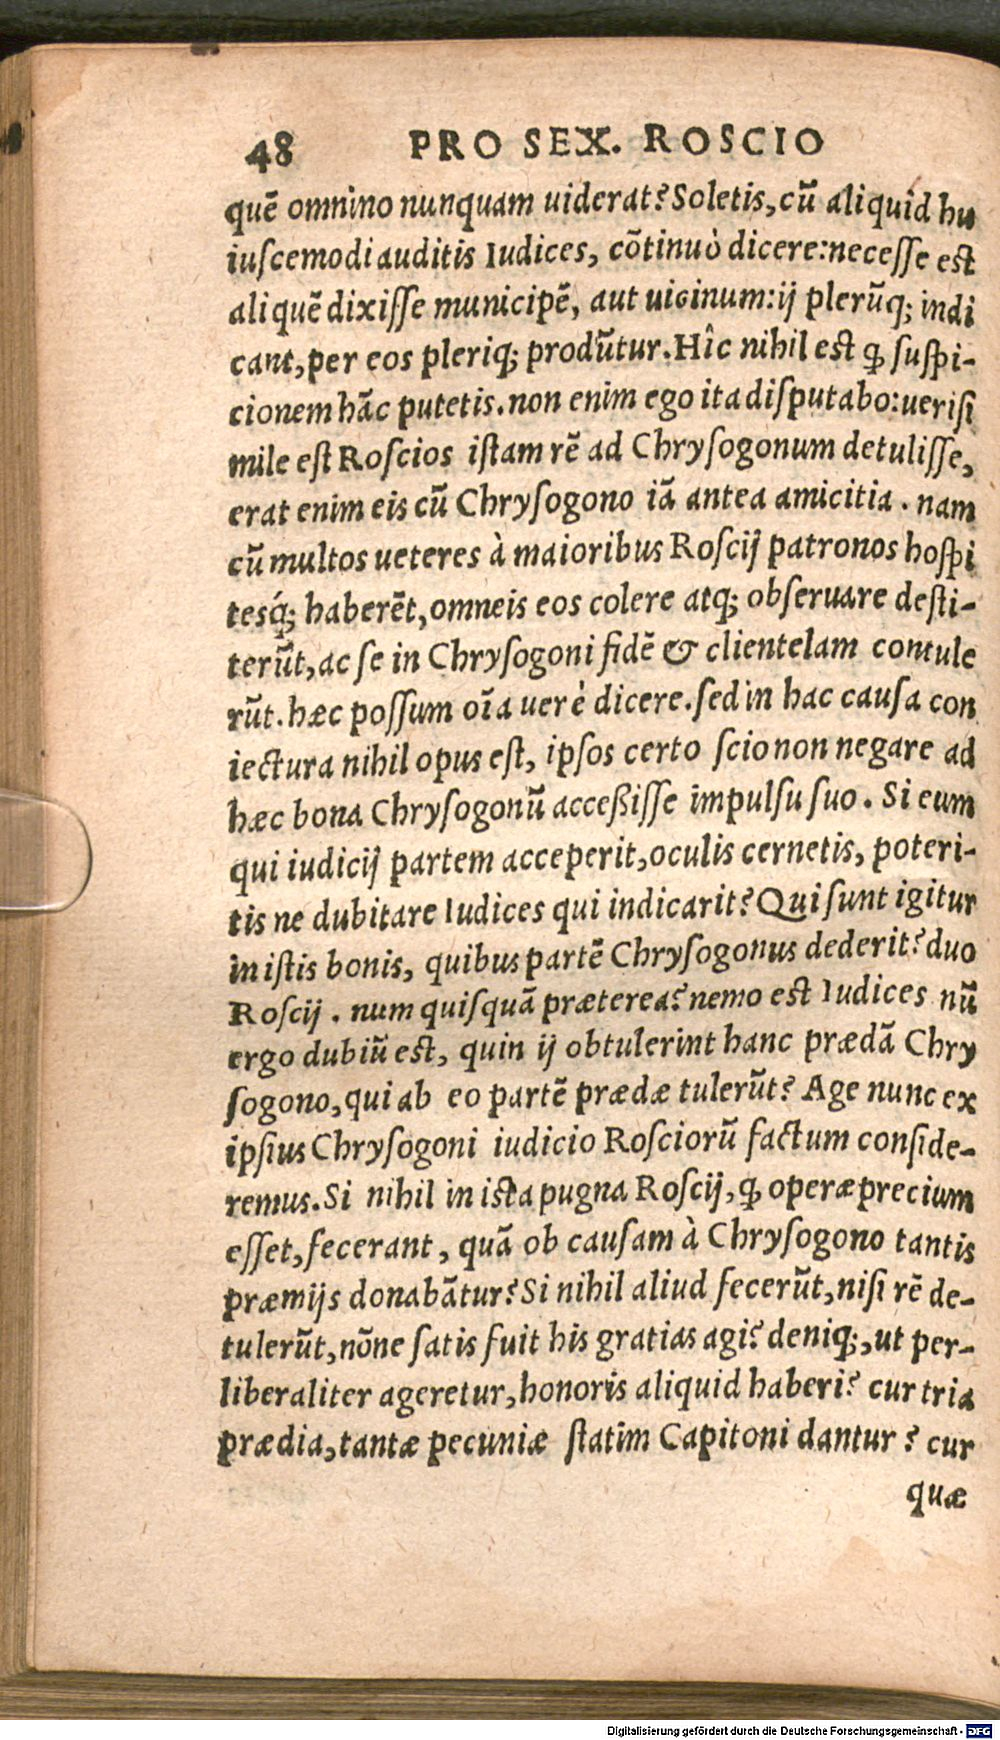 48 PRO SEX. ROSCIO
quē omnino nunquam uiderat? Soletis, cū aliquid hu
iuscemodi auditis Iudices, cōtinuò dicere: necesse est
aliquē dixisse municipē, aut uicinum: ij plerūq; indi
cant, per eos pleriq; produntur. Hîc nihil est ꝙ suspi-
cionem hāc putetis. non enim ego ita disputabo: uerisi
mile est Roscios istam rē ad Chrysogonum detulisse,
erat enim eis cū Chrysogono iā antea amicitia. nam
cū multos ueteres à maioribus Roscij patronos hospi
tesq́; haberēt, omneis eos colere atq; obseruare desti-
terūt, ac se in Chrysogoni fidē & clientelam contule
rūt. hæc possum oīa uerè dicere. sed in hac causa con
iectura nihil opus est, ipsos certo scio non negare ad
hæc bona Chrysogonū acceßisse impulsu suo. Si eum
qui iudicij partem acceperit, oculis cernetis, poteri-
tis ne dubitare Iudices qui indicarit? Qui sunt igitur
in istis bonis, quibus partē Chrysogonus dederit? duo
Roscij. num quisquā præterea? nemo est Iudices nū
ergo dubiū est, quin ij obtulerint hanc prædā Chry
sogono, qui ab eo partē prædæ tulerūt? Age nunc ex
ipsius Chrysogoni iudicio Rosciorū factum conside-
remus. Si nihil in ista pugna Roscij, ꝙ operæprecium
esset, fecerant, quā ob causam à Chrysogono tantis
præmijs donabātur? Si nihil aliud fecerūt, nisi rē de-
tulerūt, nōne satis fuit his gratias agi? deniq;, ut per-
liberaliter ageretur, honoris aliquid haberi? cur tria
prædia, tantæ pecuniæ statim Capitoni dantur? cur
quæ
Digitalisierung gefördert durch die Deutsche Forschungsgemeinschaft - DFG